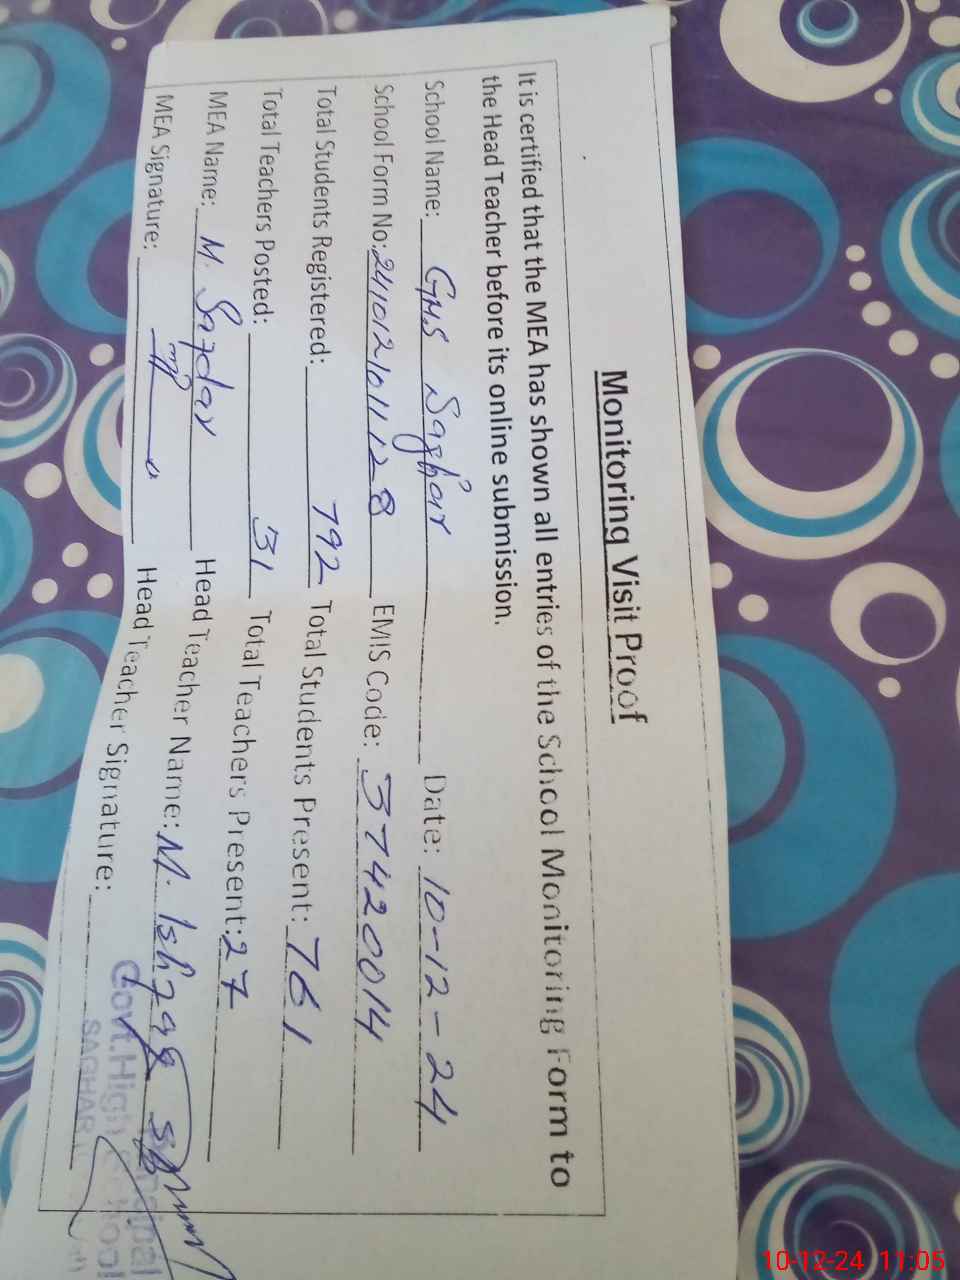 Monitoring Visit Proof
It is certified that the MEA has shown all entries of the School Monitoring Form to
the Head Teacher before its online submission.
School Name: GHS Saghar Date: 10-12-24
School Form No: 241012101128 EMIS Code: 37420014
Total Students Registered: 792 Total Students Present: 761
Total Teachers Posted: 31 Total Teachers Present: 27
MEA Name: M. Safdar Head Teacher Name: M. Ishfaq
MEA Signature: Head Teacher Signature:
Govt. High School
SAGHAR
10-12-24 11:05